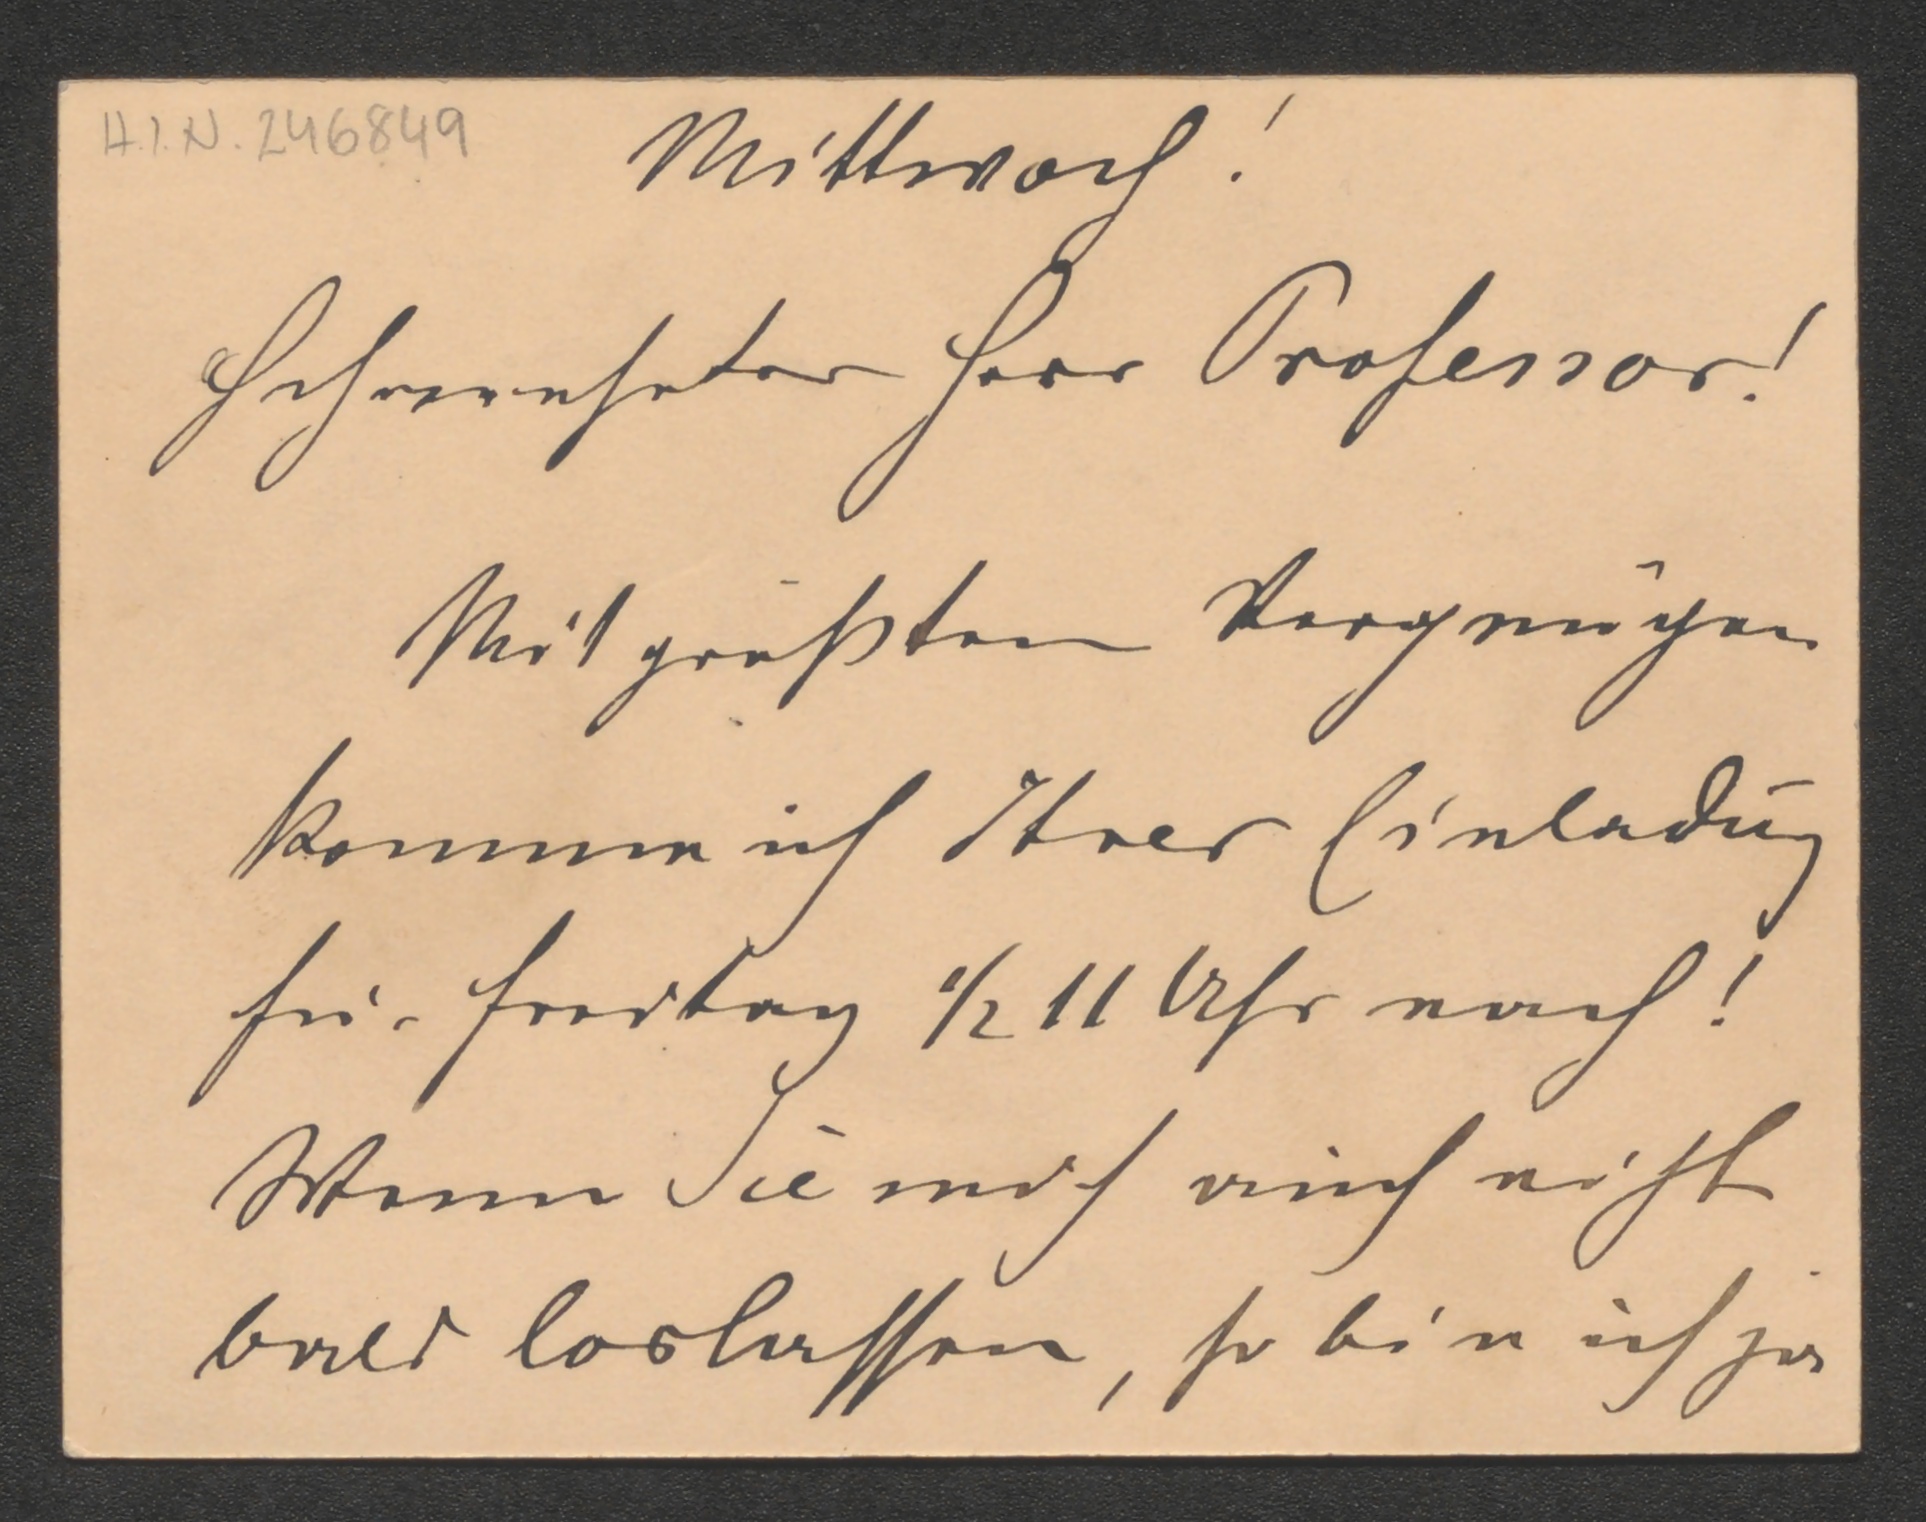 H.I.N. 246849
Mittwoch!
Sehrverehrter Herr Professor!
Mit größtem Vergnügen
komme ich Ihrer Einladung
für Freitag 1/2 11 Uhr nach!
Wenn Sie mich auch nicht
bald loslassen, so bin ich ja